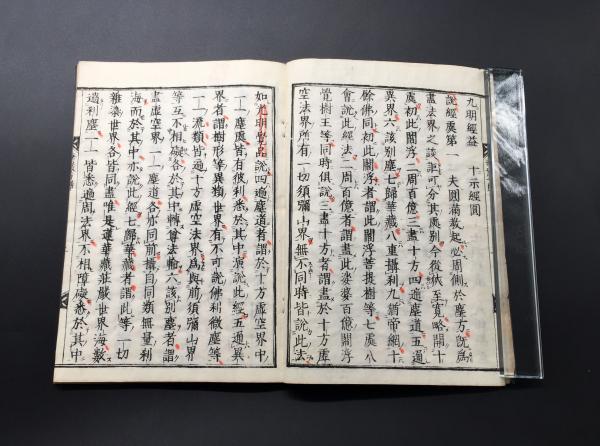 九明經益　十示經圓
說經處第一　夫圓滿教起必周側於塵方既爲
盡法界之談詎可分其處別今從狹至寬略開十
處初此閻浮二周百億三盡十方四遍塵道五通
異界六該別塵七歸華藏八重攝刹九猶帝網十
餘佛同初此閻浮者謂此閻浮菩提樹等七處八
會說此經法二周百億者謂盡此娑婆百億閻浮
覺樹王等同時俱說三盡十方者謂盡於十方虛
空法界所有一切須彌山界無不同時皆說此法
如光明覺品說四遍塵道者謂於十方虛空界中
一一塵處皆有彼刹悉於其中演說此經五通異
界者謂樹形等異類世界有不可說佛刹微塵等
一一流類皆遍十方虛空法界爲與前須彌山界
等互不相礙各於其中轉尊法輪六該別塵者謂
盡虛空界一一塵道各亦同前攝自同類無量刹
海而於其中亦說此經七歸華藏者謂此等一切
雜染世界各皆同盡唯是蓮華藏莊嚴世界海數
過刹塵一一皆悉遍周法界不相障礙悉於其中